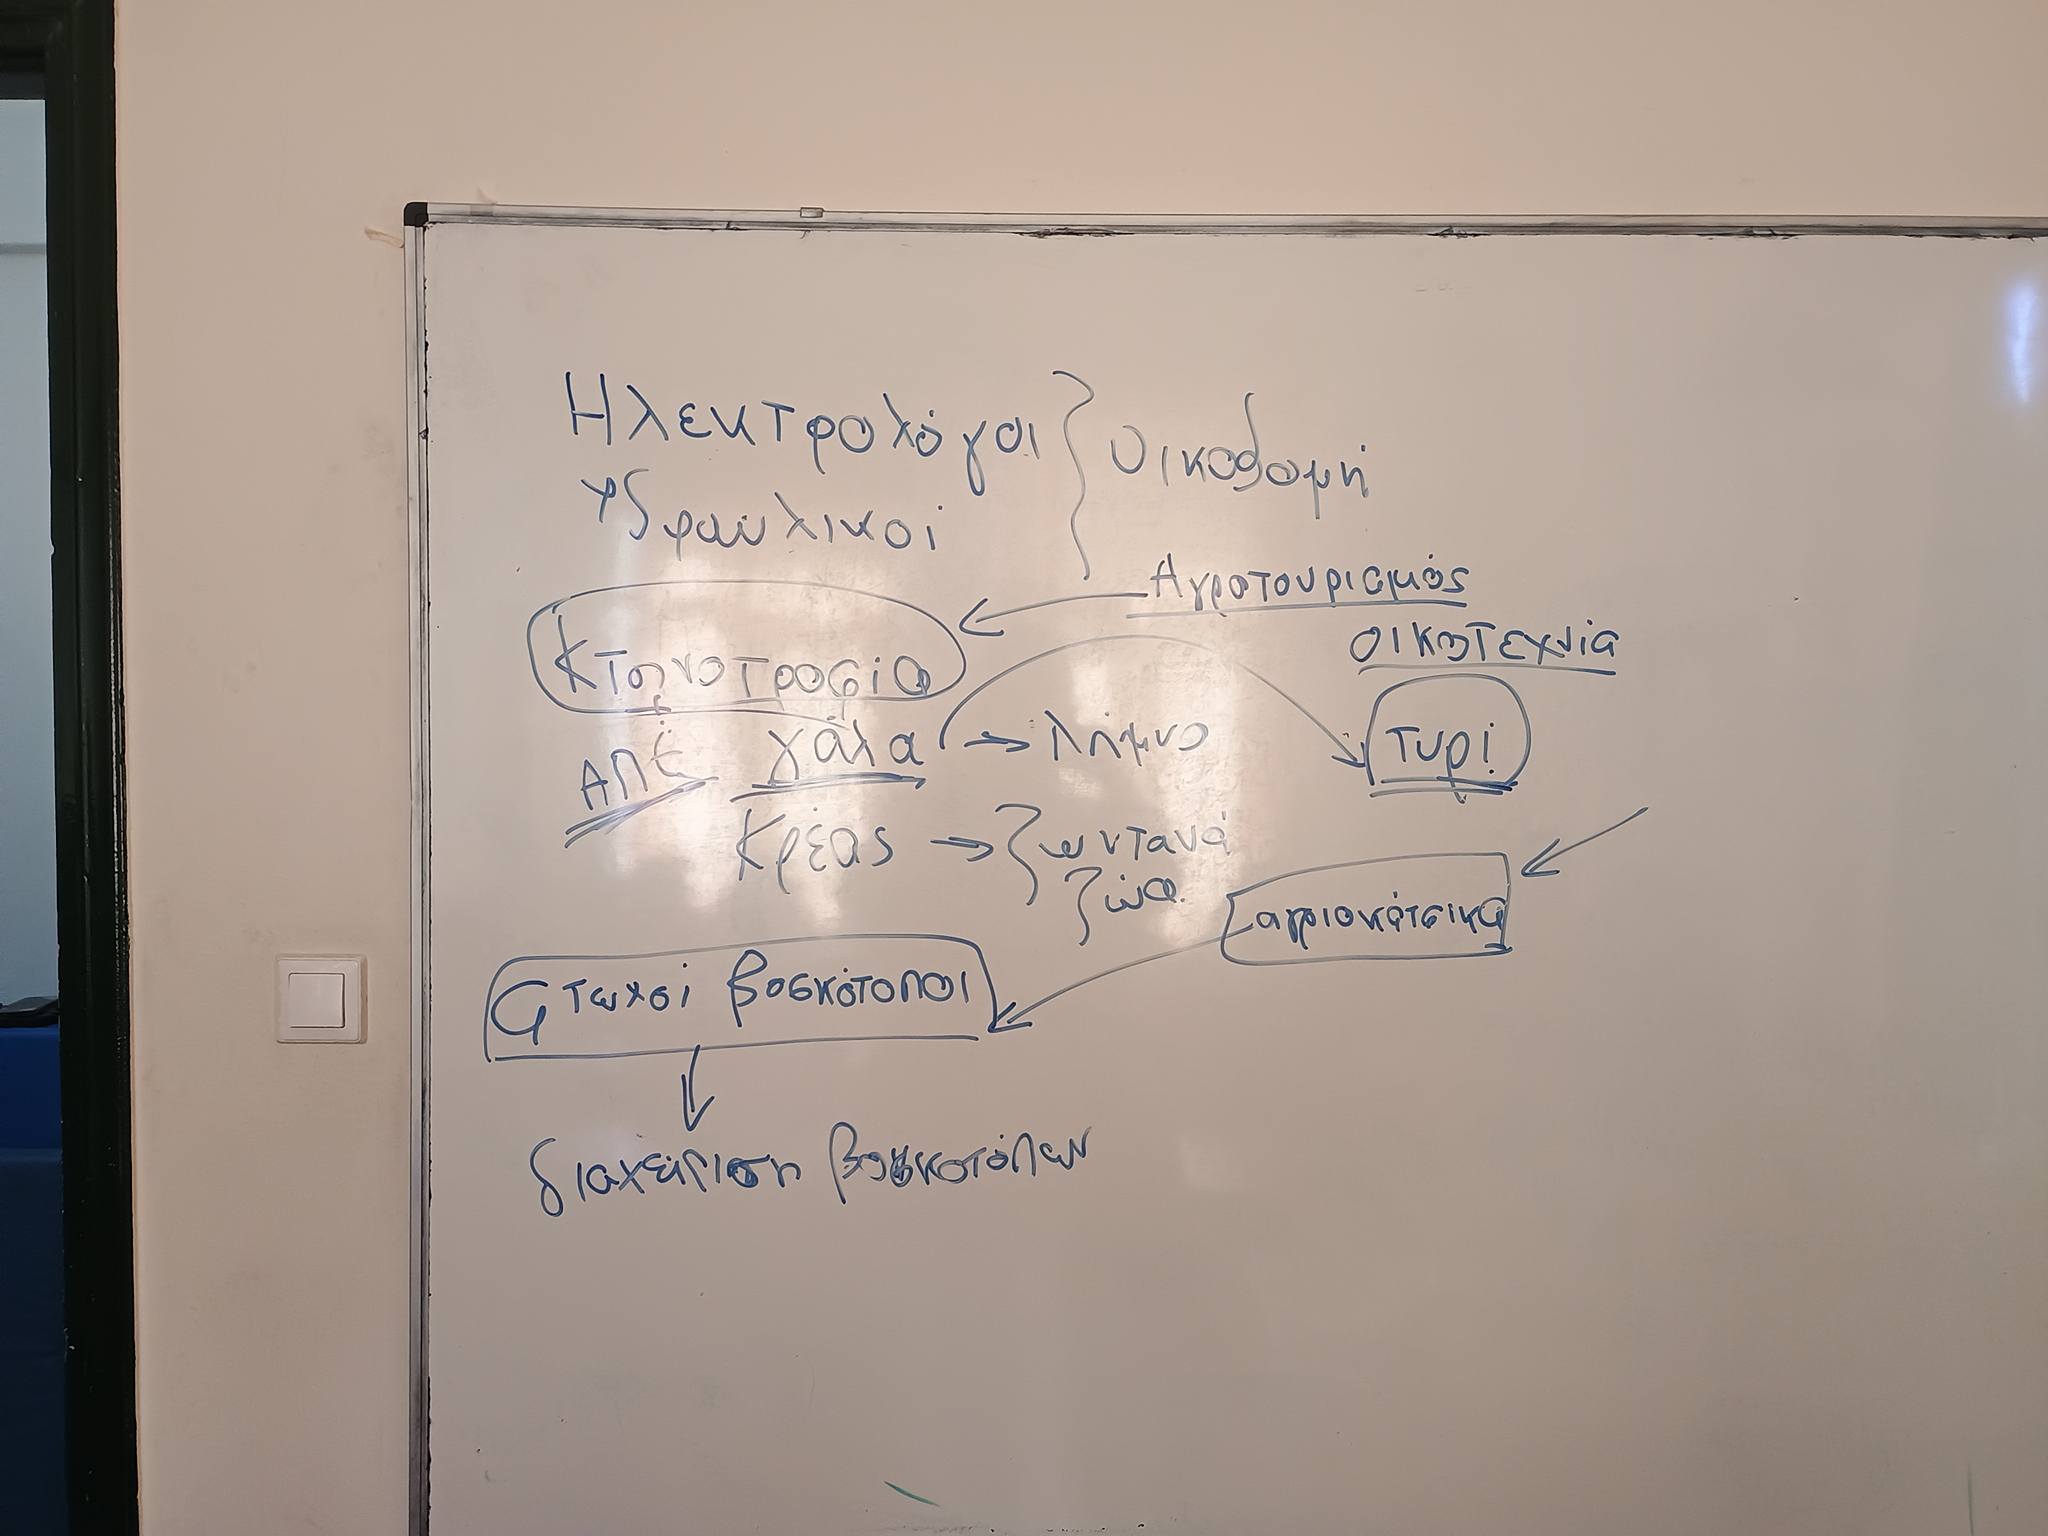 Ηλεκτρολόγοι } οικοδομή
Υδραυλικοί
Αγροτουρισμός
Κτηνοτροφία
οικοτεχνία
ΑΠΕ γάλα → Λήμνο τυρί
Κρέας → ζωντανά
ζώα
αγριοκάτσικα
φτωχοί βοσκότοποι
διαχείριση βοσκοτόπων